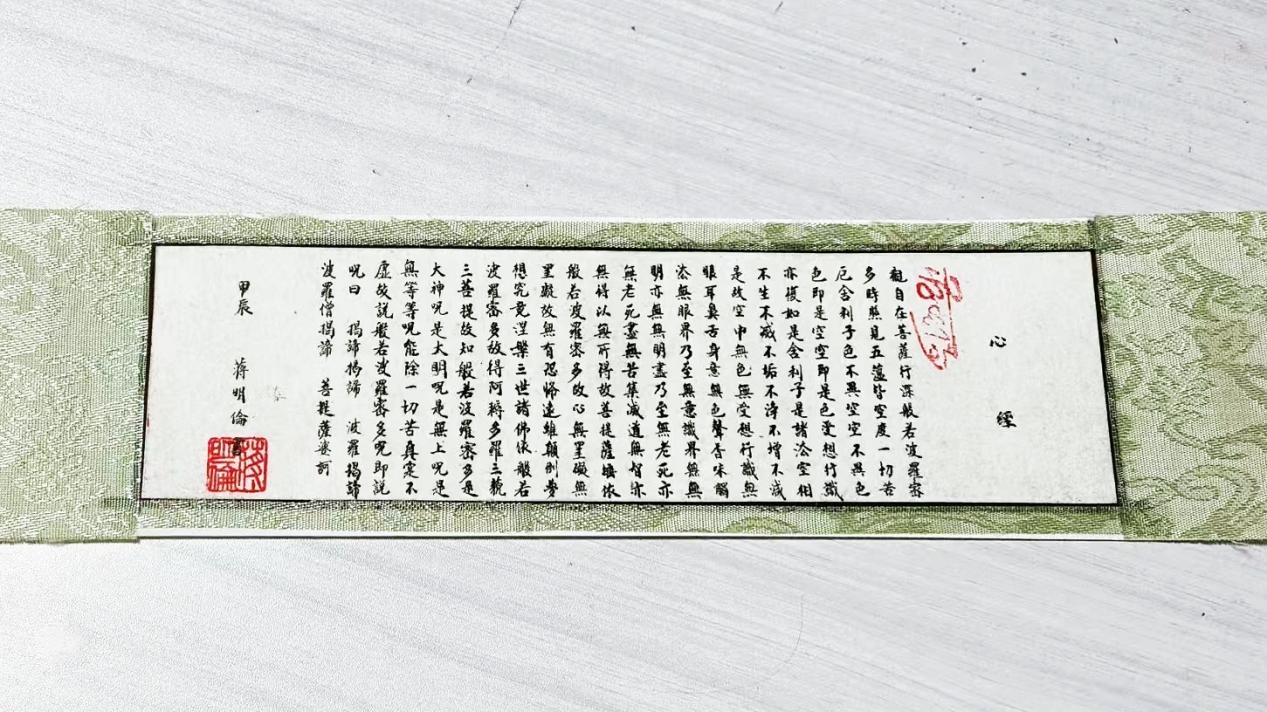 心經
觀自在菩薩行深般若波羅密
多時照見五蘊皆空度一切苦
厄舍利子色不異空空不異色
色即是空空即是色受想行識
亦復如是舍利子是諸法空相
不生不滅不垢不淨不增不減
是故空中無色無受想行識無
眼耳鼻舌身意無色聲香味觸
法無眼界乃至無意識界無無
明亦無無明盡乃至無老死亦
無老死盡無苦集滅道無智亦
無得以無所得故菩提薩埵依
般若波羅密多故心無罣礙無
罣礙故無有恐怖遠離顛倒夢
想究竟涅槃三世諸佛依般若
波羅密多故得阿耨多羅三藐
三菩提故知般若波羅密多是
大神呪是大明呪是無上呪是
無等等呪能除一切苦真實不
虛故說般若波羅密多呪即說
呪曰 揭諦揭諦 波羅揭諦
波羅僧揭諦 菩提薩婆訶
甲辰 蔣明倫書
蔣明倫